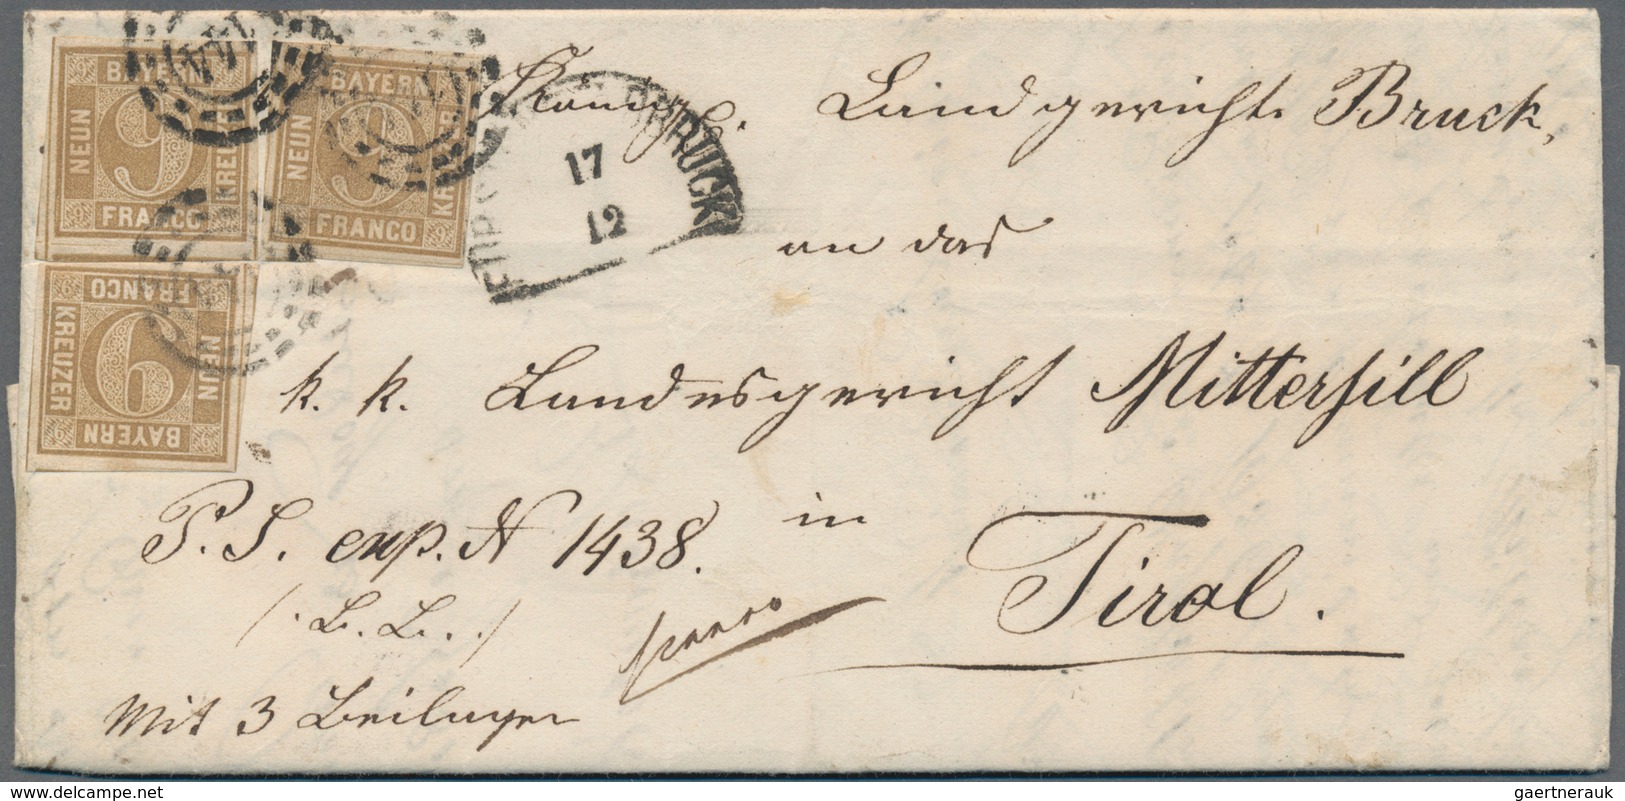 BAYERN
NEUN
9
KREUZER
FRANCO
BAYERN
NEUN
9
KREUZER
FRANCO
BAYERN
NEUN
9
KREUZER
FRANCO
BRUCK
17
12
Königl. Landgericht Bruck,
an das
k. k. Landesgericht Mittersill
in
Tirol.
P. S. exp. N 1438.
Mit 3 Beilagen
delcampe.net
gaertnerauk